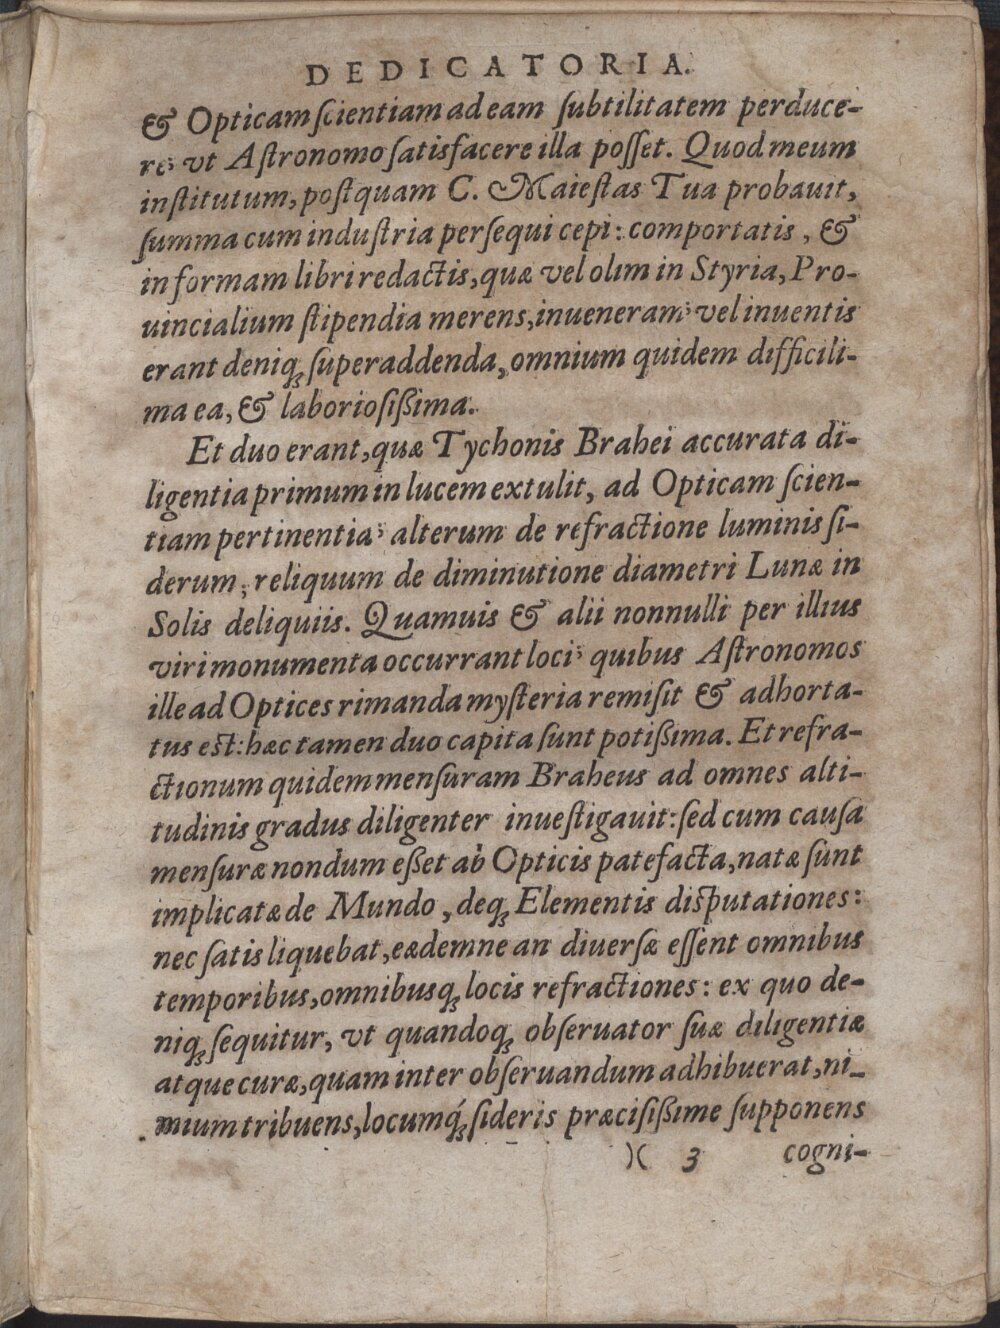 DEDICATORIA.
& Opticam ſcientiam ad eam ſubtilitatem perduce-
re, vt Aſtronomo ſatisfacere illa poſſet. Quod meum
inſtitutum, poſtquam C. Maieſtas Tua probauit,
ſumma cum induſtria perſequi cepi: comportatis, &
in formam libri redactis, quæ vel olim in Styria, Pro-
uincialium ſtipendia merens, inueneram; vel inuentis
erant deniq; ſuperaddenda, omnium quidem difficili-
ma ea, & laborioſißima.
Et duo erant, quæ Tychonis Brahei accurata di-
ligentia primum in lucem extulit, ad Opticam ſcien-
tiam pertinentia; alterum de refractione luminis ſi-
derum, reliquum de diminutione diametri Lunæ in
Solis deliquiis. Quamuis & alii nonnulli per illius
viri monumenta occurrant loci; quibus Aſtronomos
ille ad Optices rimanda myſteria remiſit & adhorta-
tus eſt: hæc tamen duo capita ſunt potißima. Et refra-
ctionum quidem menſuram Braheus ad omnes alti-
tudinis gradus diligenter inueſtigauit: ſed cum cauſa
menſuræ nondum eßet ab Opticis patefacta, natæ ſunt
implicatæ de Mundo, deq; Elementis diſputationes:
nec ſatis liquebat, eædemne an diuerſæ eſſent omnibus
temporibus, omnibusq; locis refractiones: ex quo de-
niq; ſequitur, vt quandoq; obſeruator ſuæ diligentiæ
atque curæ, quam inter obſeruandum adhibuerat, ni-
mium tribuens, locumq́; ſideris præciſißime ſupponens
)( 3 cogni-